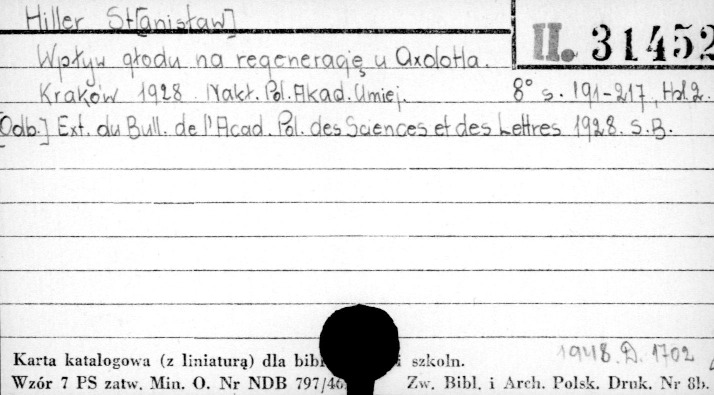 Hiller St[anisław]
II. 31452
Wpływ głodu na regenerację u Axolotla.
Kraków 1928 Nakł. Pol. Akad. Umiej. 8° s. 191-217, tbl. 2.
[Odb.] Ext. du Bull. de l'Acad. Pol. des Sciences et des Lettres 1928. S.B.
1948. D. 1702
Karta katalogowa (z liniaturą) dla bibl i szkoln.
Wzór 7 PS zatw. Min. O. Nr NDB 797/46 Zw. Bibl. i Arch. Polsk. Druk. Nr 8b.